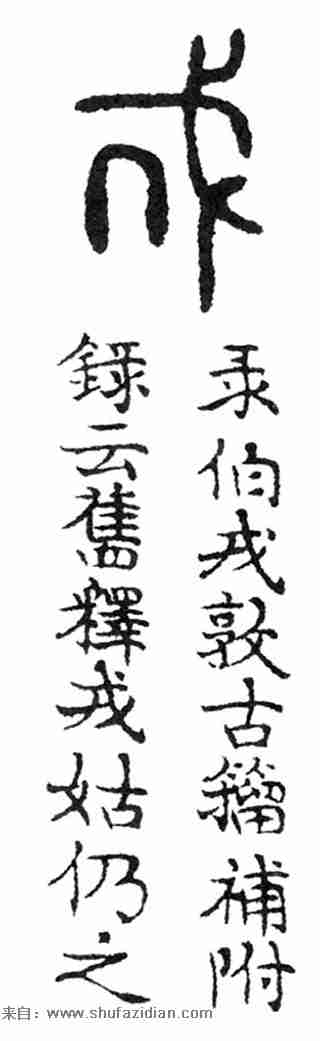 彔伯戎敦古籀補附
錄云舊釋戎姑仍之
来自：www.shufazidian.com